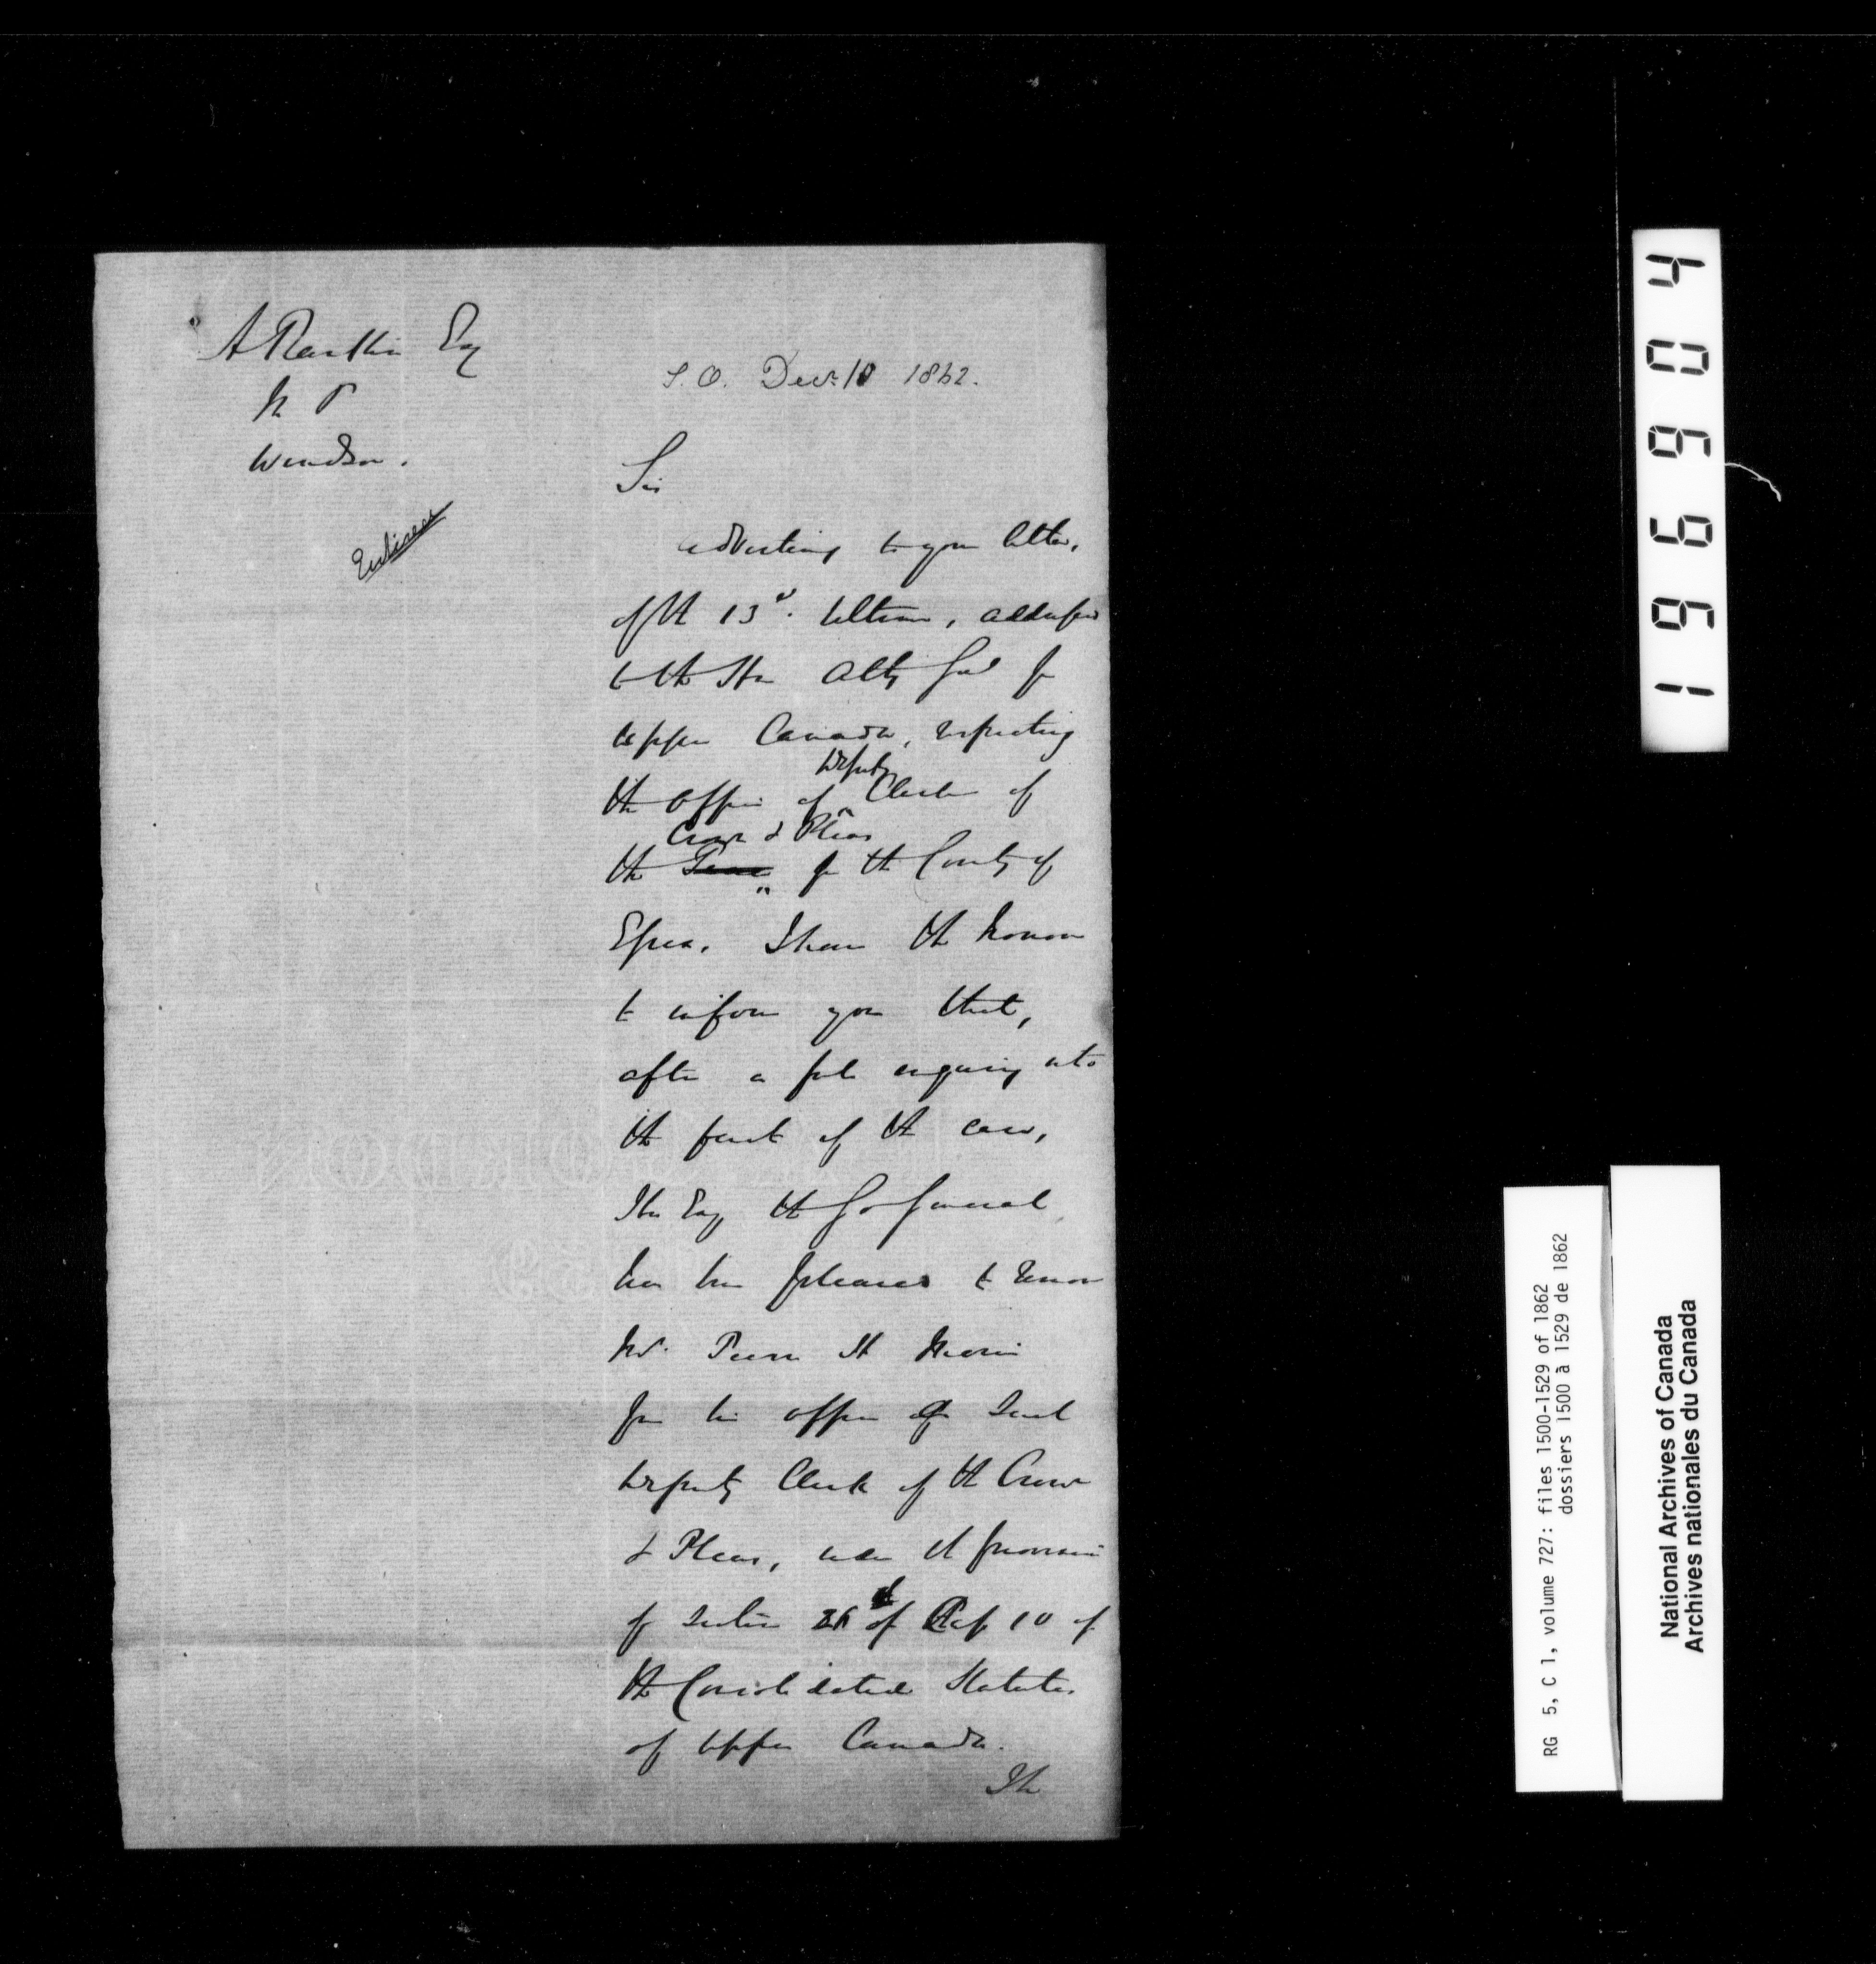 A Rankin Esq
M P
Windsor.
S.O. Decr. 10 1862.
Sir
Entered
adverting to your letter,
of the 13th. Ultimo, addressed
to the Hon Atty Genl for
Upper Canada, respecting
the office of Deputy Clerk of
the Peace Crown & Pleas for the County of
Essex. I have the honour
to inform you that,
after a full enquiry into
the facts of the case,
His Exy the Gov General
has been pleased to remove
Mr. Pierre H Morin
from his office of Said
Deputy Clerk of the Crown
& Pleas, under the provisions
of Section of Cap 10 of
the Consolidated Statutes
of Upper Canada.
The
196904
RG 5, C 1, volume 727: files 1500-1529 of 1862
dossiers 1500 à 1529 de 1862
National Archives of Canada
Archives nationales du Canada